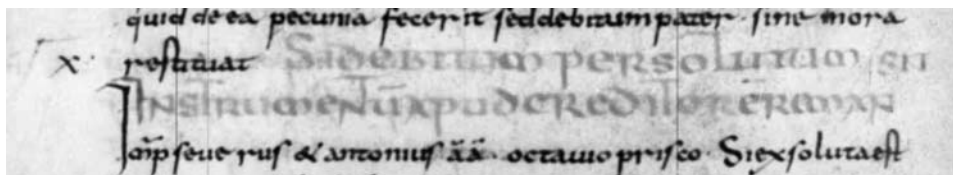 quid de ea pecunia fecerit sed debitum pater · sine mora
x · restituat Si debitum persolutum sit
Instrumentū apud creditorē reman
Im̄p seuerus & antonius āā octauio prisco · Si exsoluta est